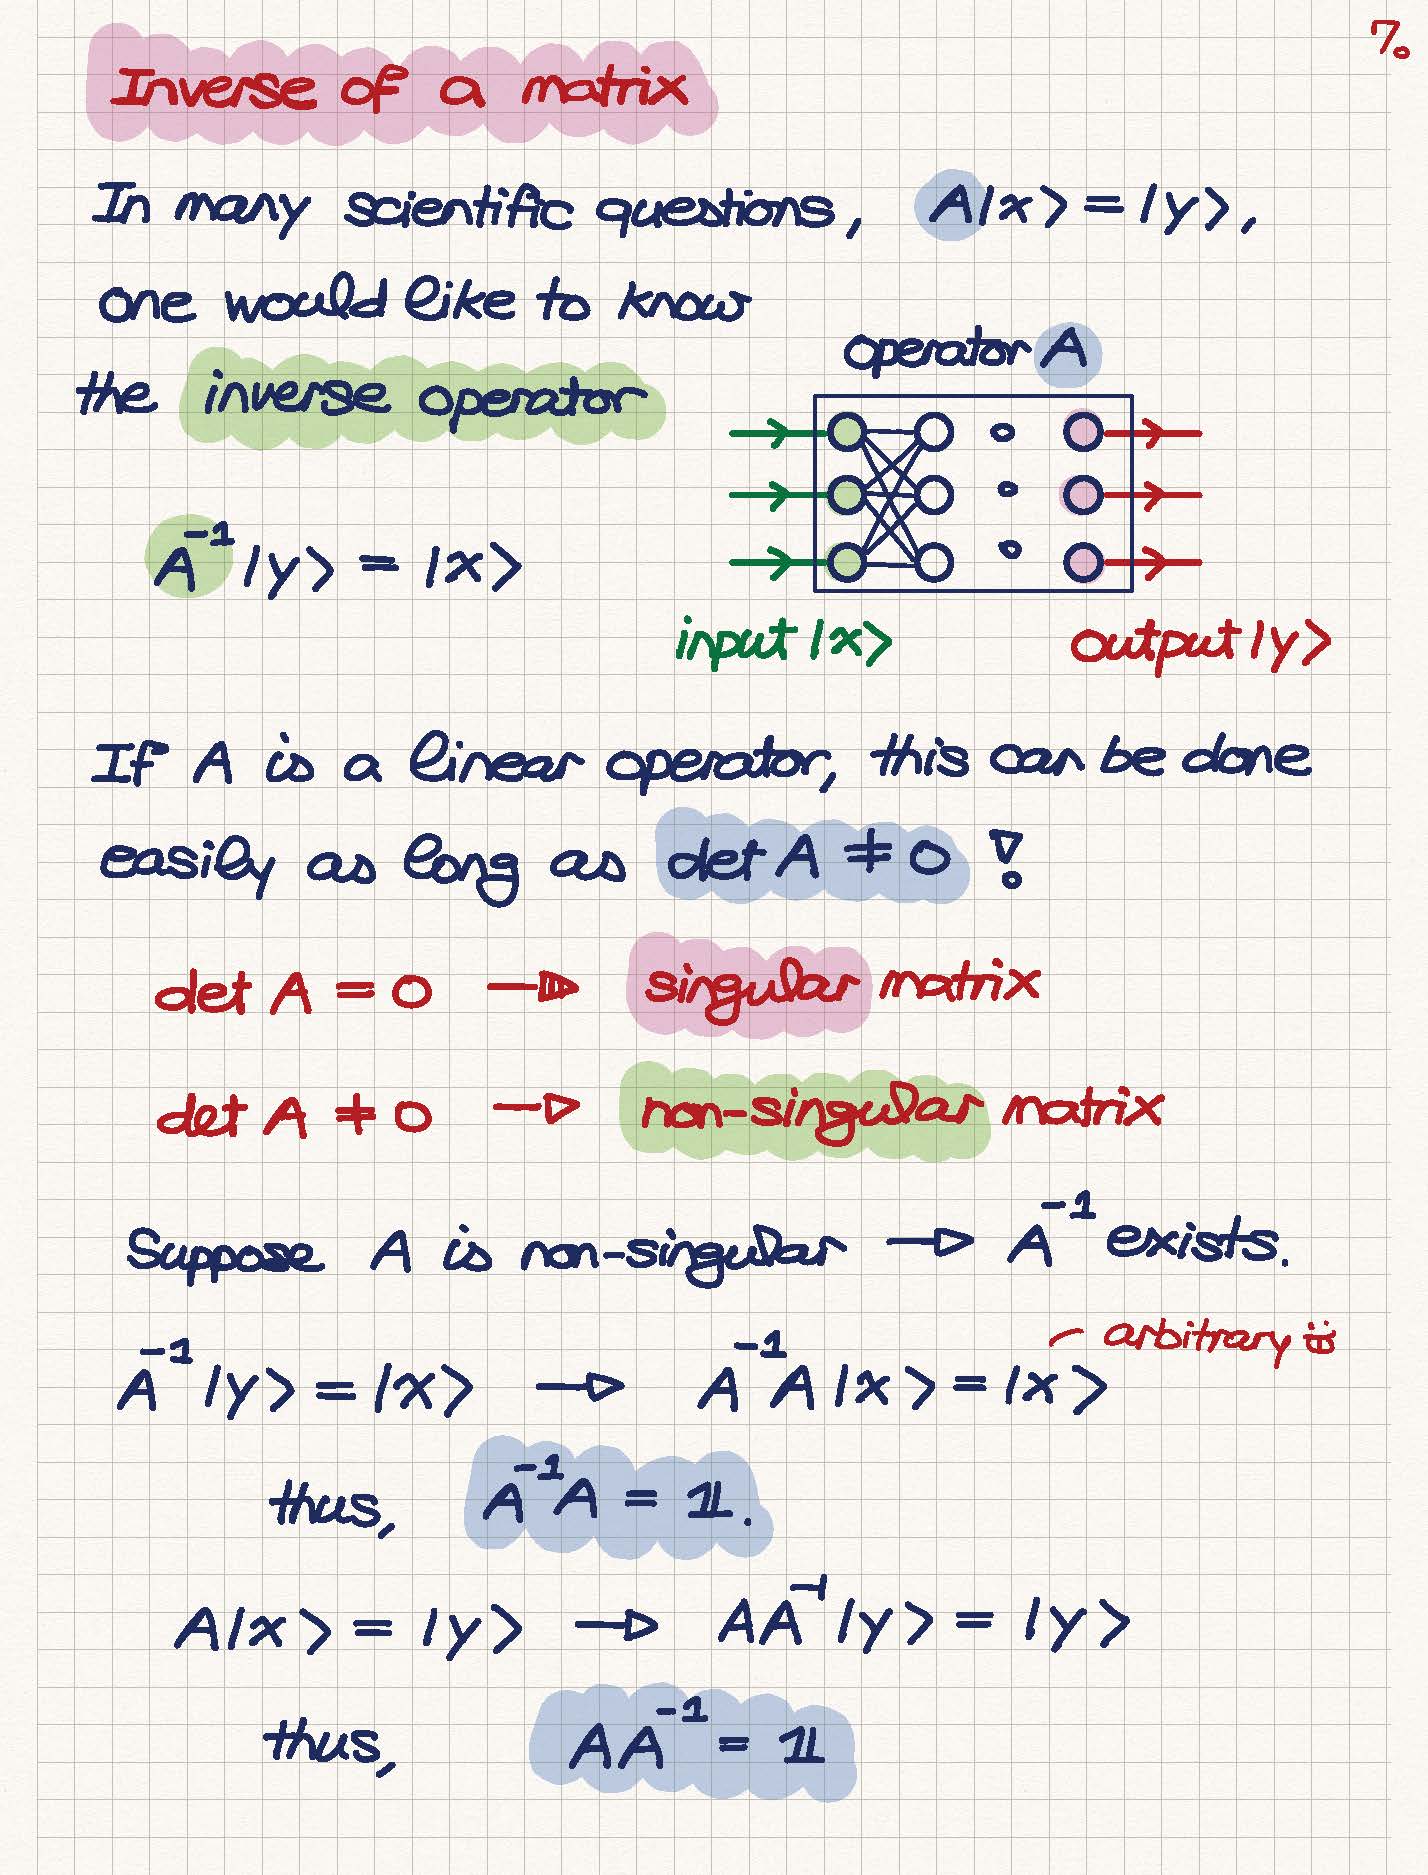 7.
Inverse of a matrix
In many scientific questions, A|x> = |y>,
one would like to know
the inverse operator
operator A
A⁻¹|y> = |x>
input |x>
output |y>
If A is a linear operator, this can be done
easily as long as det A ≠ 0 !
det A = 0 → singular matrix
det A ≠ 0 → non-singular matrix
Suppose A is non-singular → A⁻¹ exists.
arbitrary
A⁻¹|y> = |x> → A⁻¹A|x> = |x>
thus, A⁻¹A = 𝟙.
A|x> = |y> → AA⁻¹|y> = |y>
thus, AA⁻¹ = 𝟙